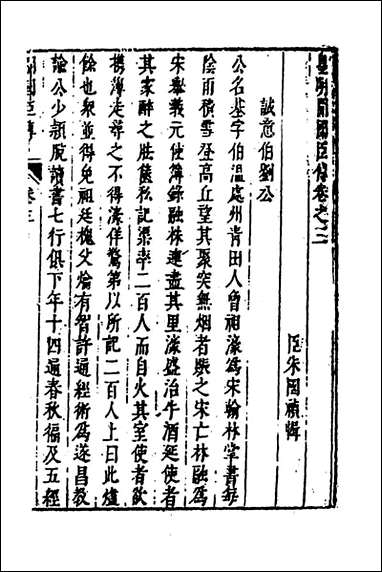 皇明開國臣傳卷之二
臣朱國禎輯
誠意伯劉公
公名基字伯溫處州青田人曾祖濠爲宋翰林掌書每
陰雨積雪登高丘望其聚突無烟者賑之宋亡林融爲
宋舉義元使簿錄融株連盡其里濠盛治牛酒延使者
其家醉之陰籍私記渠率二百人而自火其室使者欲
構薄走尋之不得濠佯驚第以所記二百人上曰此燼
餘也衆並得免祖廷槐父爚有智許通經術爲遂昌教
諭公少穎脫讀書七行俱下年十四通春秋福及五經
開國臣傳
卷三